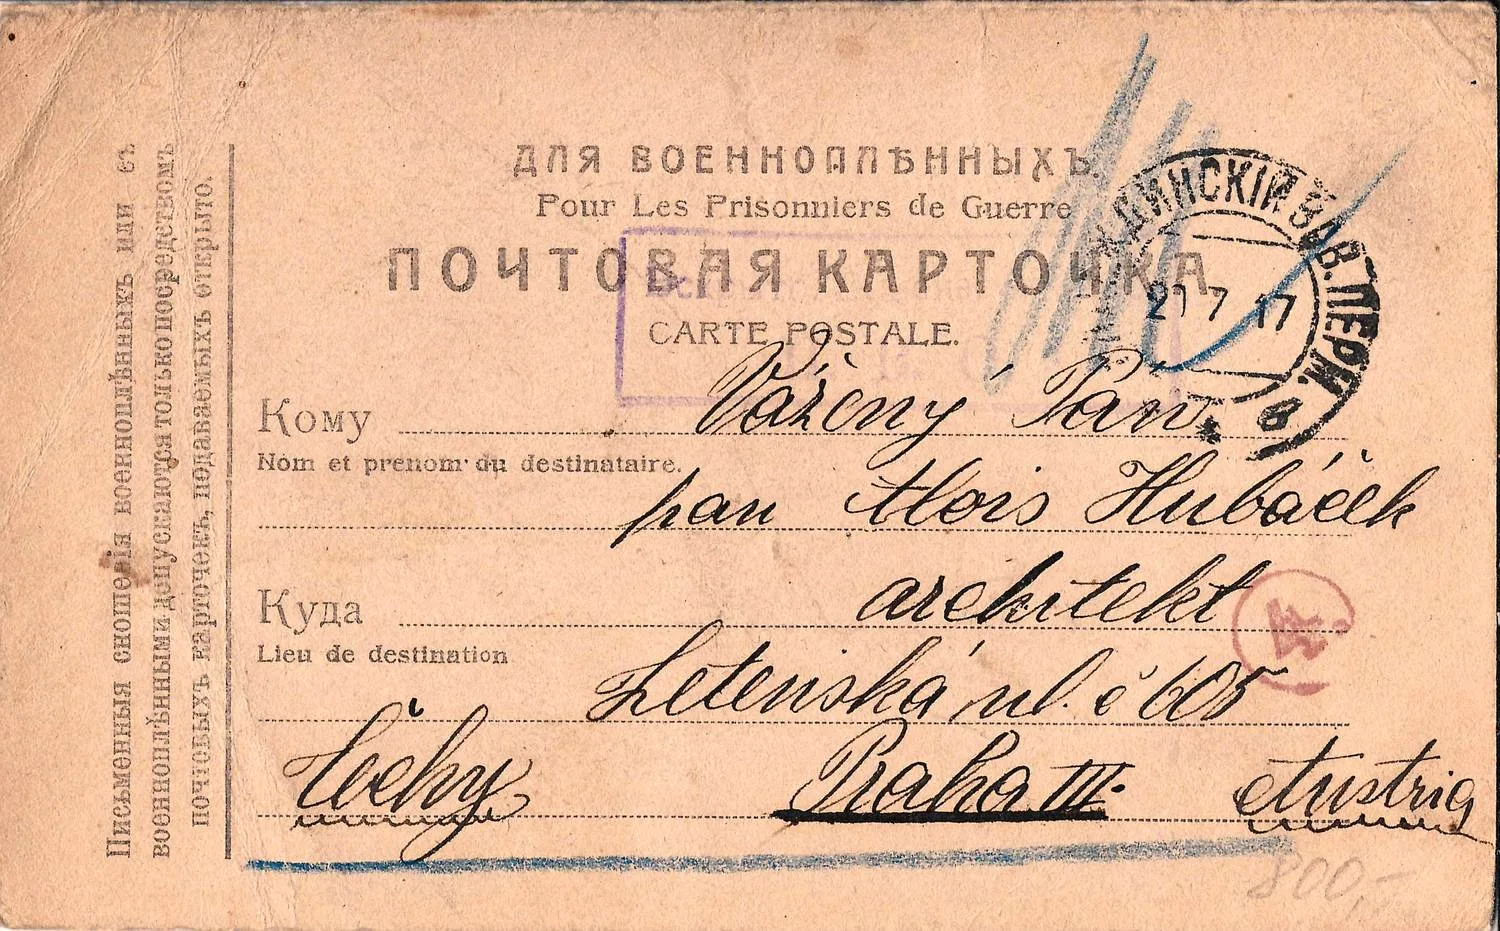 ДЛЯ ВОЕННОПЛѢННЫХЪ.
Pour Les Prisonniers de Guerre
ПОЧТОВАЯ КАРТОЧКА
CARTE POSTALE.
ДИНСКІЙ ЗАВ. ПЕРМ.
21 7 17
Кому
Vážený Pan
Nom et prenom du destinataire.
pan Alois Hubáček
architekt
Куда
Lieu de destination
Letenská ul. č 605
Čechy Praha III. Austria
800,-
Письменныя сношенія военноплѣнныхъ или съ
военноплѣнными допускаются только посредствомъ
почтовыхъ карточекъ, подаваемыхъ открыто.